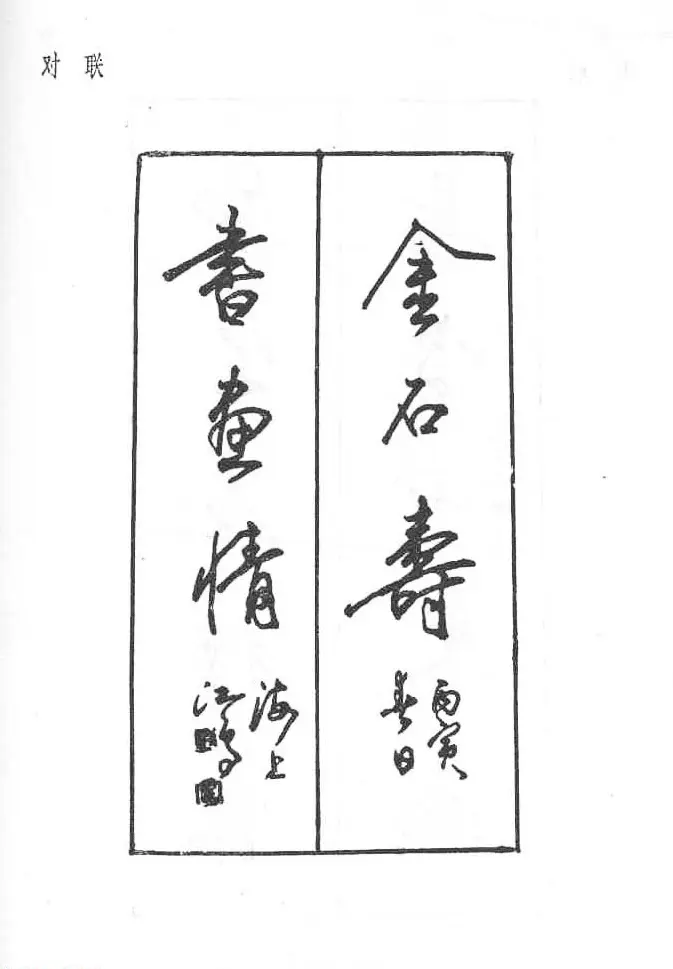 对联
金石壽
丙寅
春日
書畫情
海上
江